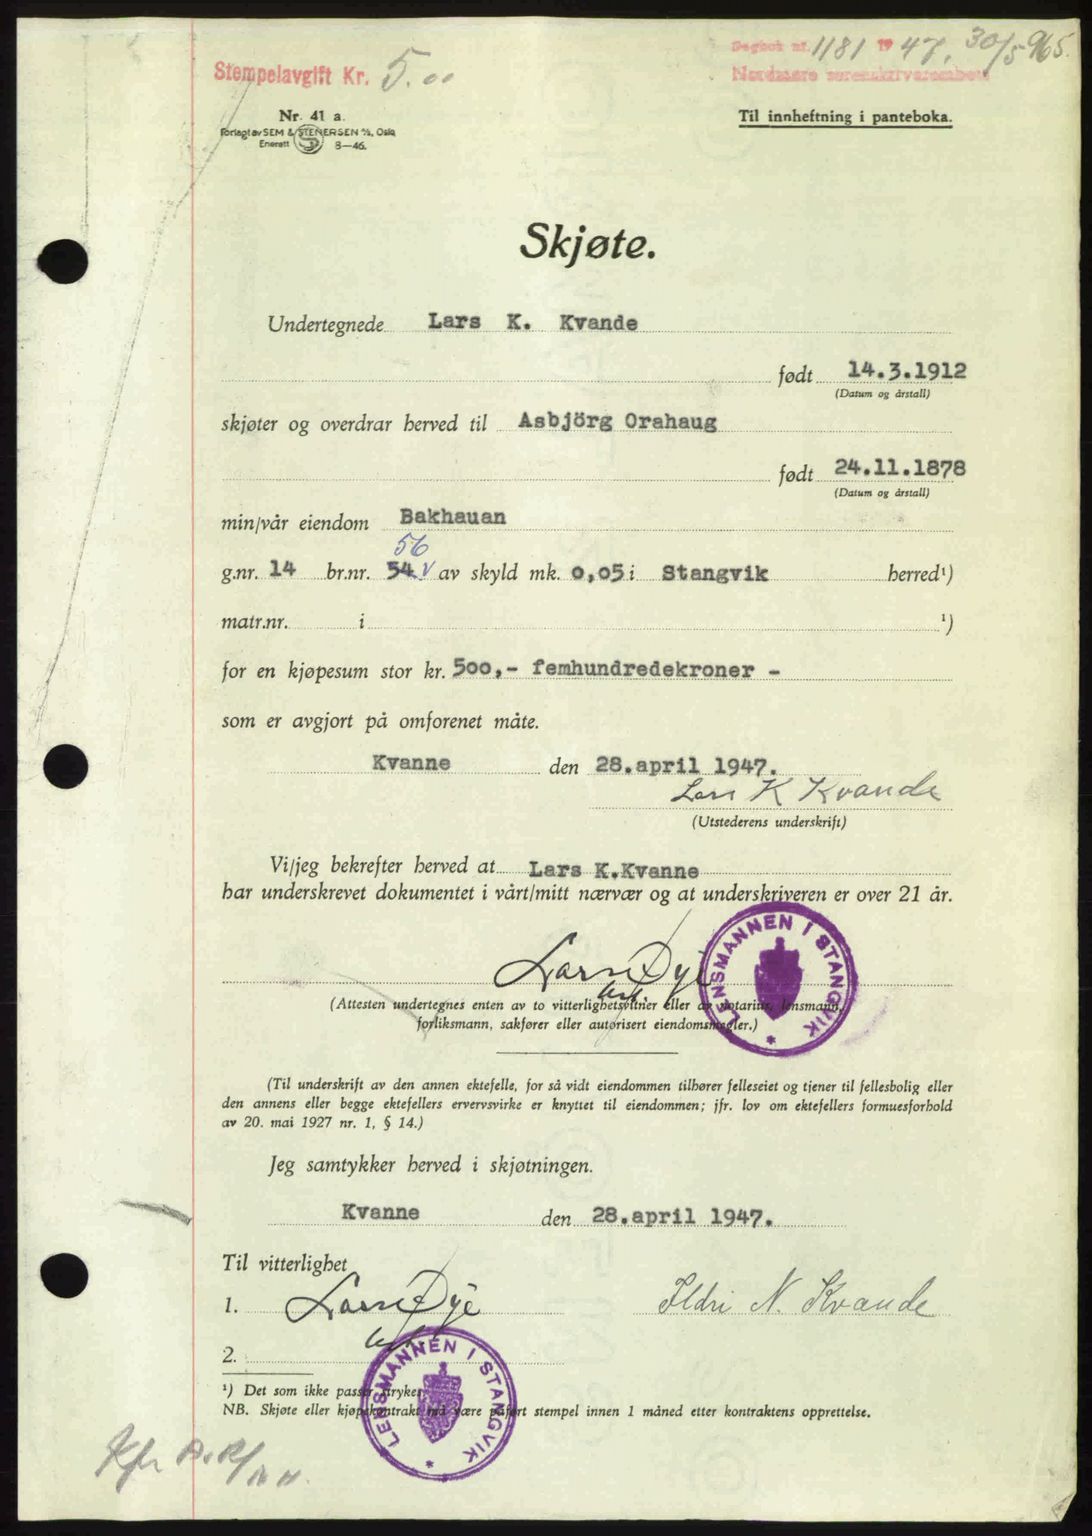 Stempelavgift Kr. 5.00
Dagbok nr. 1181 1947, 30/5 965.
Nordmøre sorenskriverembete
Nr. 41 a.
Forlagt av SEM & STENERSEN A/S, Oslo
Enerett 8—46.
Til innheftning i panteboka.
Skjøte.
Undertegnede Lars K. Kvande
født 14.3.1912
(Datum og årstall)
skjøter og overdrar herved til Asbjörg Orahaug
født 24.11.1878
(Datum og årstall)
min/vår eiendom Bakhauan
56
g.nr. 14 br.nr. 54 V av skyld mk. 0,05 i Stangvik herred¹)
matr.nr. i ¹)
for en kjøpesum stor kr. 500,- femhundredekroner -
som er avgjort på omforenet måte.
Kvanne den 28.april 1947.
Lars K Kvande
(Utstederens underskrift)
Vi/jeg bekrefter herved at Lars K.Kvanne
har underskrevet dokumentet i vårt/mitt nærvær og at underskriveren er over 21 år.
Lars Øye
LENSMANNEN I STANGVIK
(Attesten undertegnes enten av to vitterlighetsvitner eller av notarius, lensmann,
forliksmann, sakfører eller autorisert eiendomsmegler.)
(Til underskrift av den annen ektefelle, for så vidt eiendommen tilhører felleseiet og tjener til fellesbolig eller
den annens eller begge ektefellers ervervsvirke er knyttet til eiendommen; jfr. lov om ektefellers formuesforhold
av 20. mai 1927 nr. 1, § 14.)
Jeg samtykker herved i skjøtningen.
Kvanne den 28.april 1947.
Til vitterlighet
1. Lars Øye Ildri N. Kvande
2.
LENSMANNEN I STANGVIK
¹) Det som ikke passer strykes.
NB. Skjøte eller kjøpekontrakt må være påført stempel innen 1 måned etter kontraktens opprettelse.